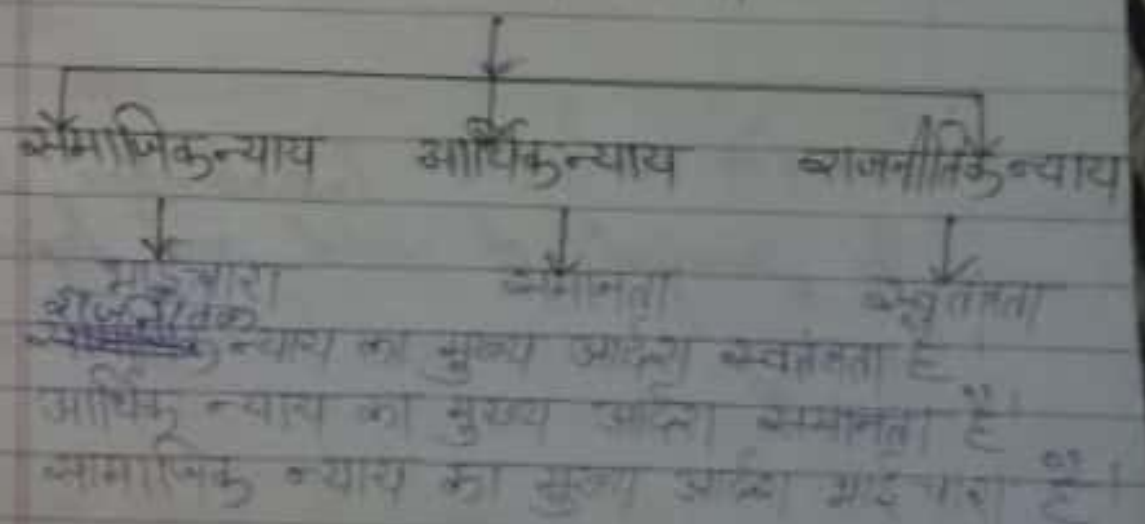 सामाजिक न्याय आर्थिक न्याय राजनीतिक न्याय
भाईचारा समानता स्वतंत्रता
राजनीतिक
न्याय का मुख्य आदर्श स्वतंत्रता है
आर्थिक न्याय का मुख्य आदर्श समानता है।
सामाजिक न्याय का मुख्य आदर्श भाईचारा है।